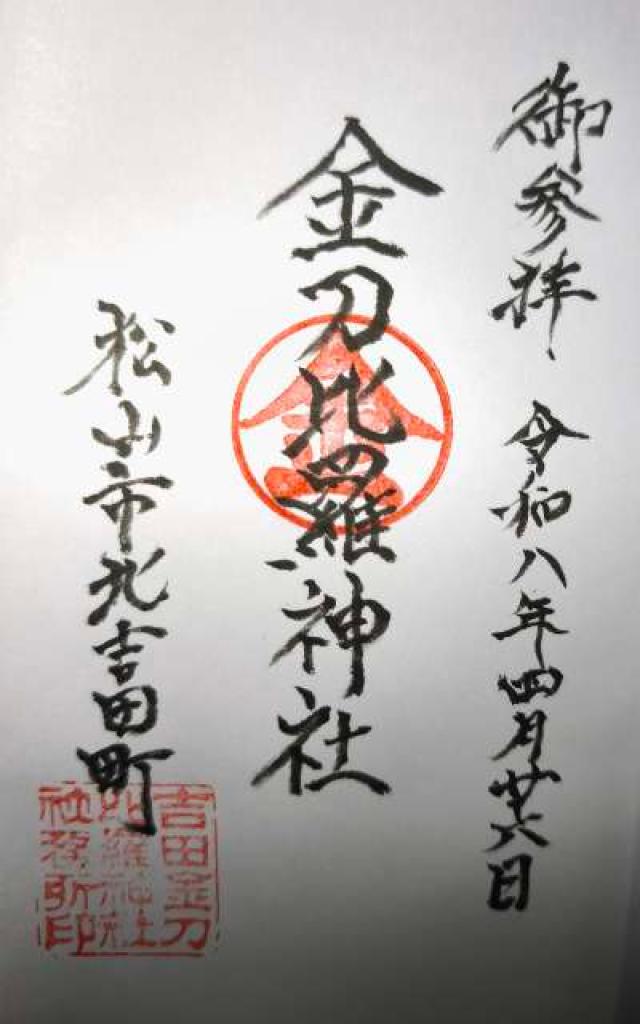 御参拝、令和八年四月廿六日
金刀比羅神社
金
松山市北吉田町
吉田金刀
比羅神社
社務所印